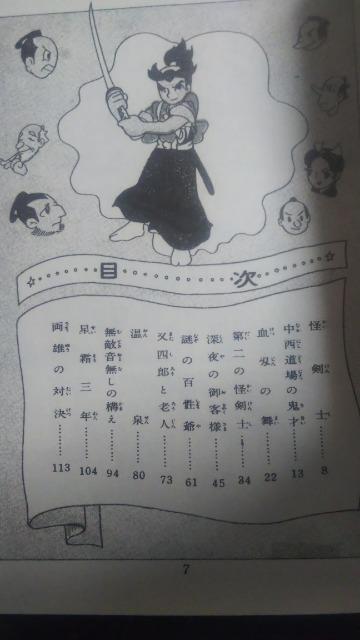 目次
怪剣士……8
中西道場の鬼才……13
血刃の舞……22
第二の怪剣士……34
深夜の御客様……45
謎の百姓爺……61
又四郎と老人……73
温泉……80
無敵音無しの構え……94
星霜三年……104
両雄の対決……113
7